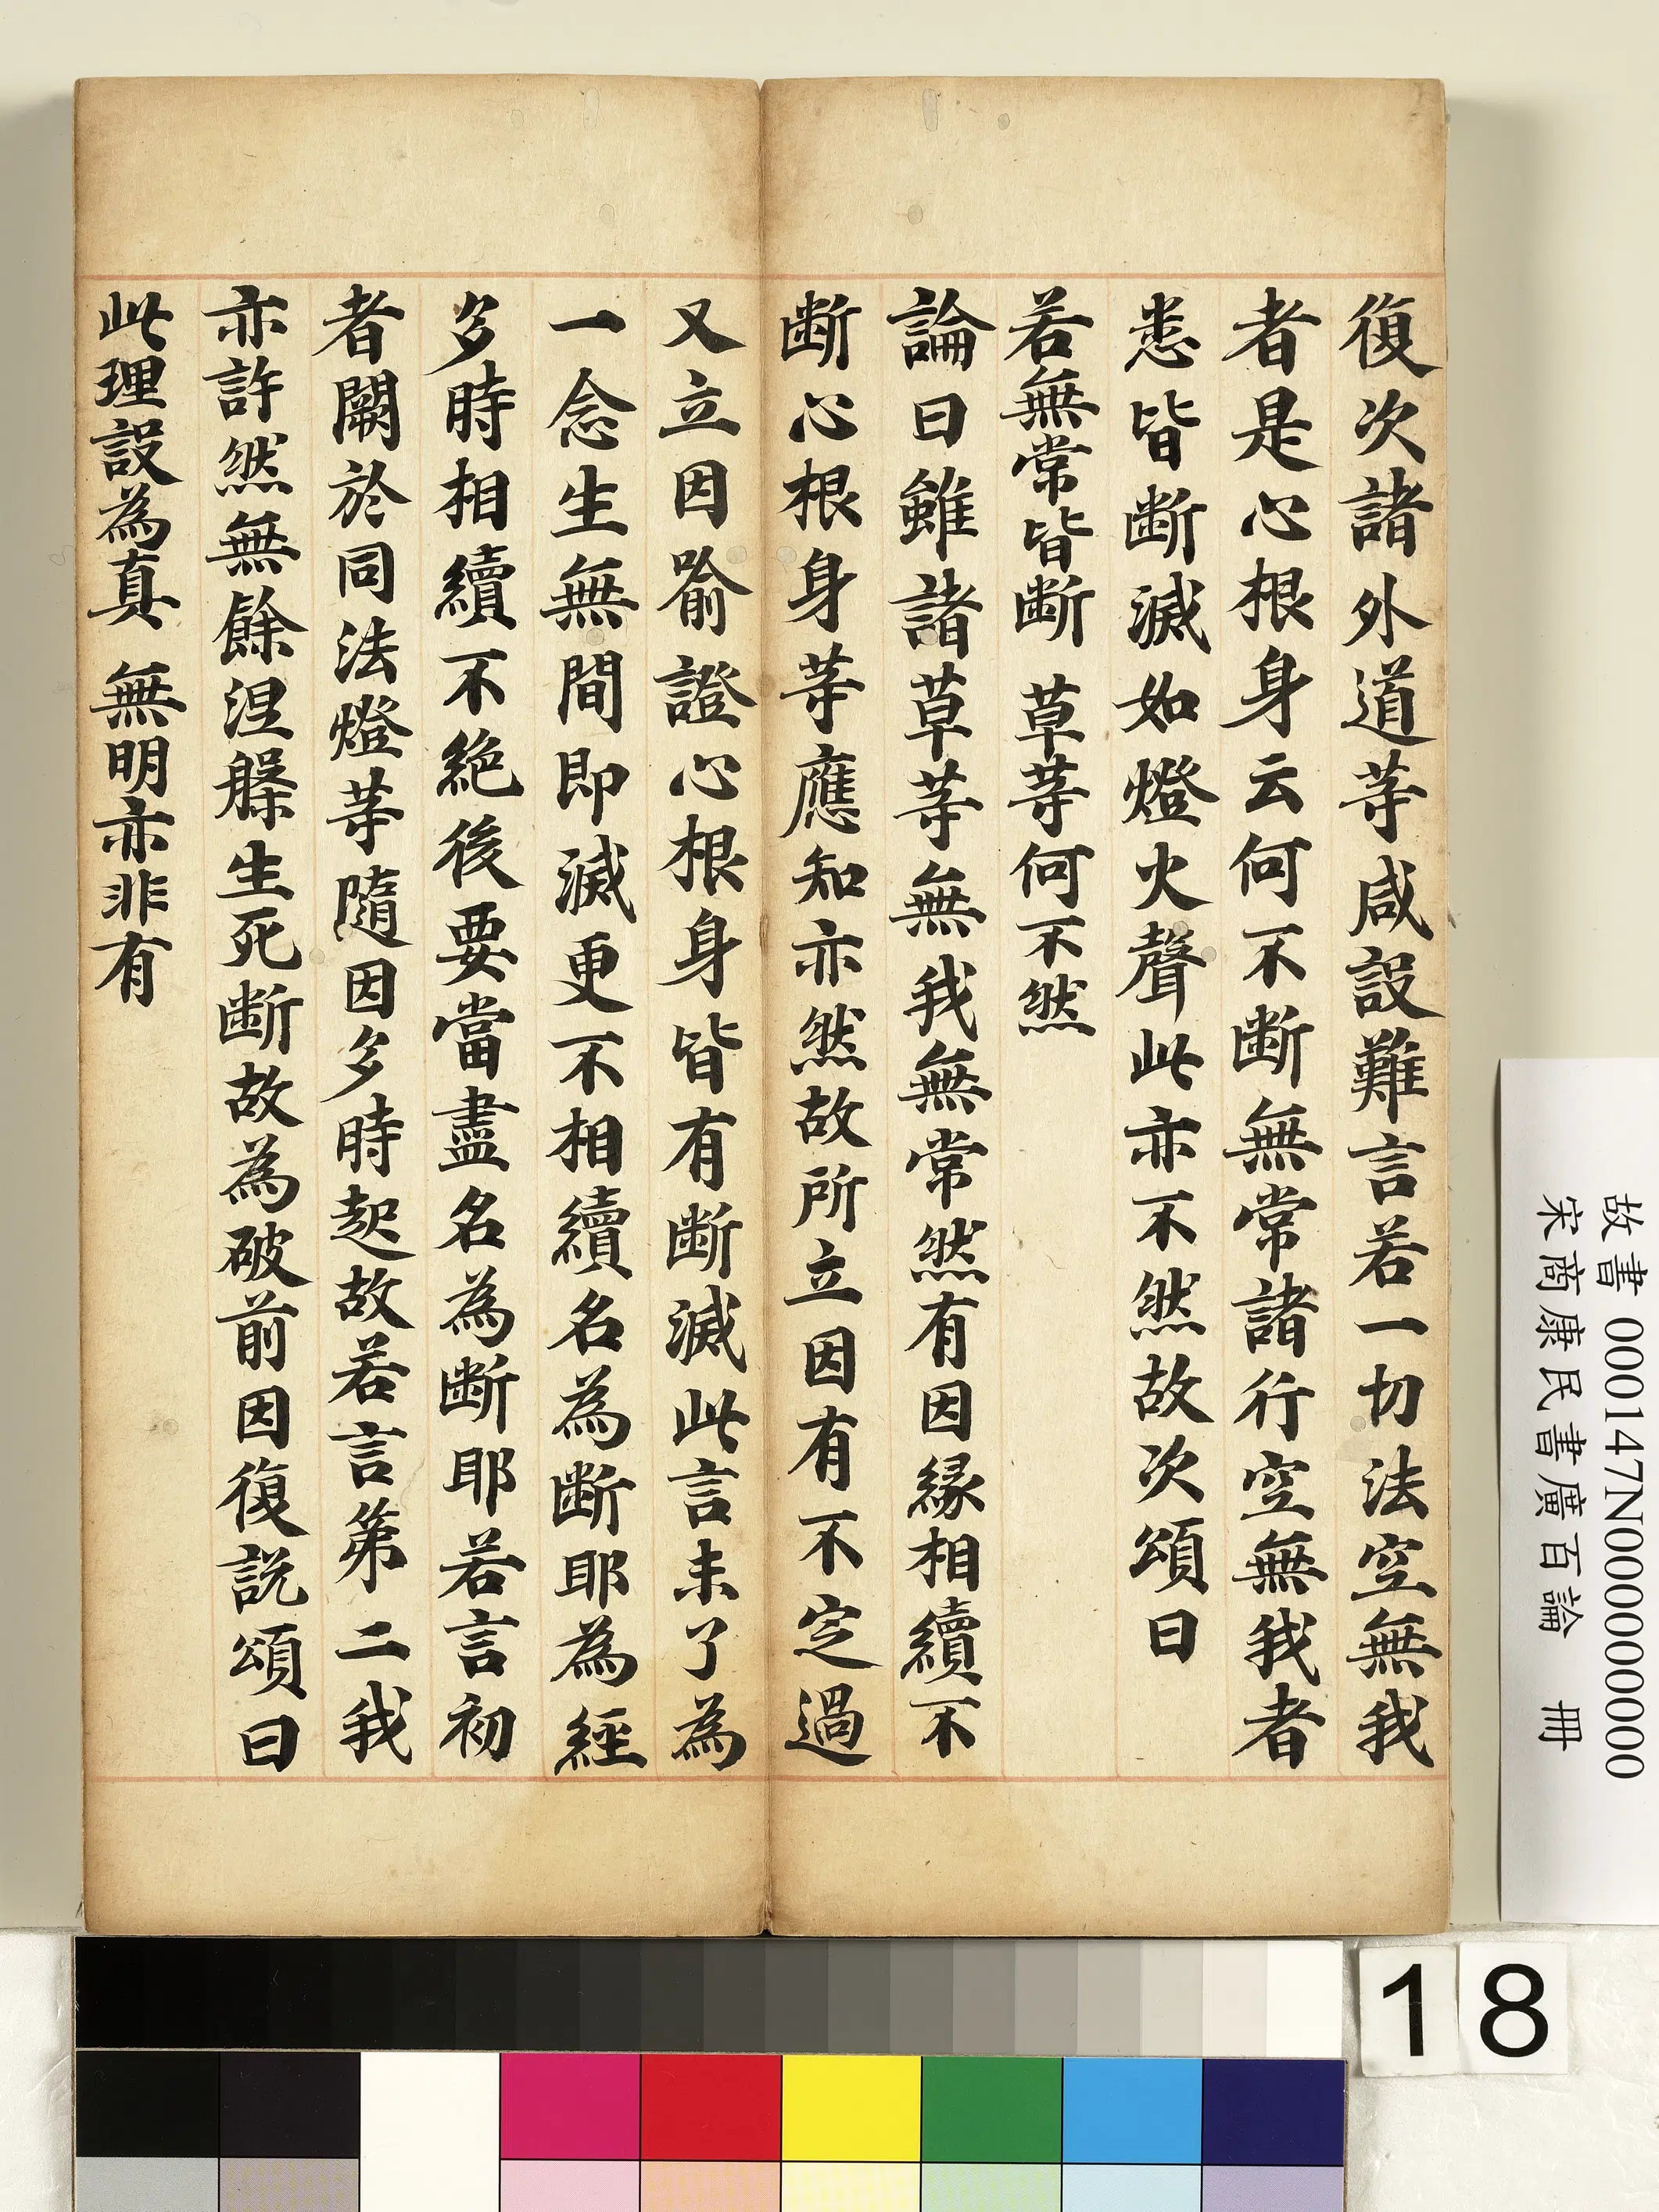 復次諸外道等咸設難言若一切法空無我
者是心根身云何不斷無常諸行空無我者
悉皆斷滅如燈火聲此亦不然故次頌曰
若無常皆斷　草等何不然
論曰雖諸草等無我無常然有因緣相續不
斷心根身等應知亦然故所立因有不定過
又立因喻證心根身皆有斷滅此言未了為
一念生無間即滅更不相續名為斷耶為經
多時相續不絕後要當盡名為斷耶若言初
者闕於同法燈等隨因多時起故若言第二我
亦許然無餘涅槃生死斷故為破前因復說頌曰
此理設為真　無明亦非有
故書 000147N000000000
宋商康民書廣百論　冊
18